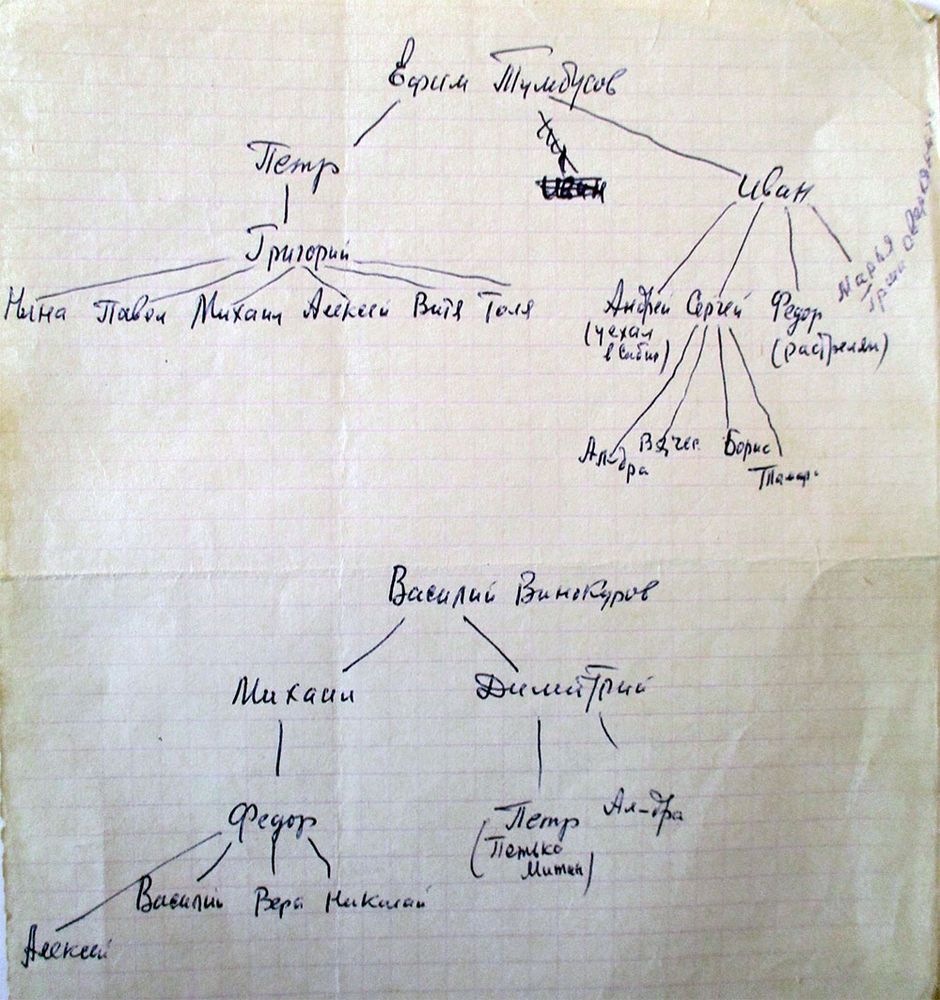 Ефим Тумбусов
Иван
Петр Иван
Григорий
Марья
Нина Павел Михаил Алексей Витя Толя Андрей Сергей Федор
(уехал (растрелян)
в Сибир)
Ал-дра Вячес Борис
Тамар
Василий Винокуров
Михаил Димитрий
Федор Петр Ал-дра
(Петько
Митин)
Василий Вера Николай
Алексей